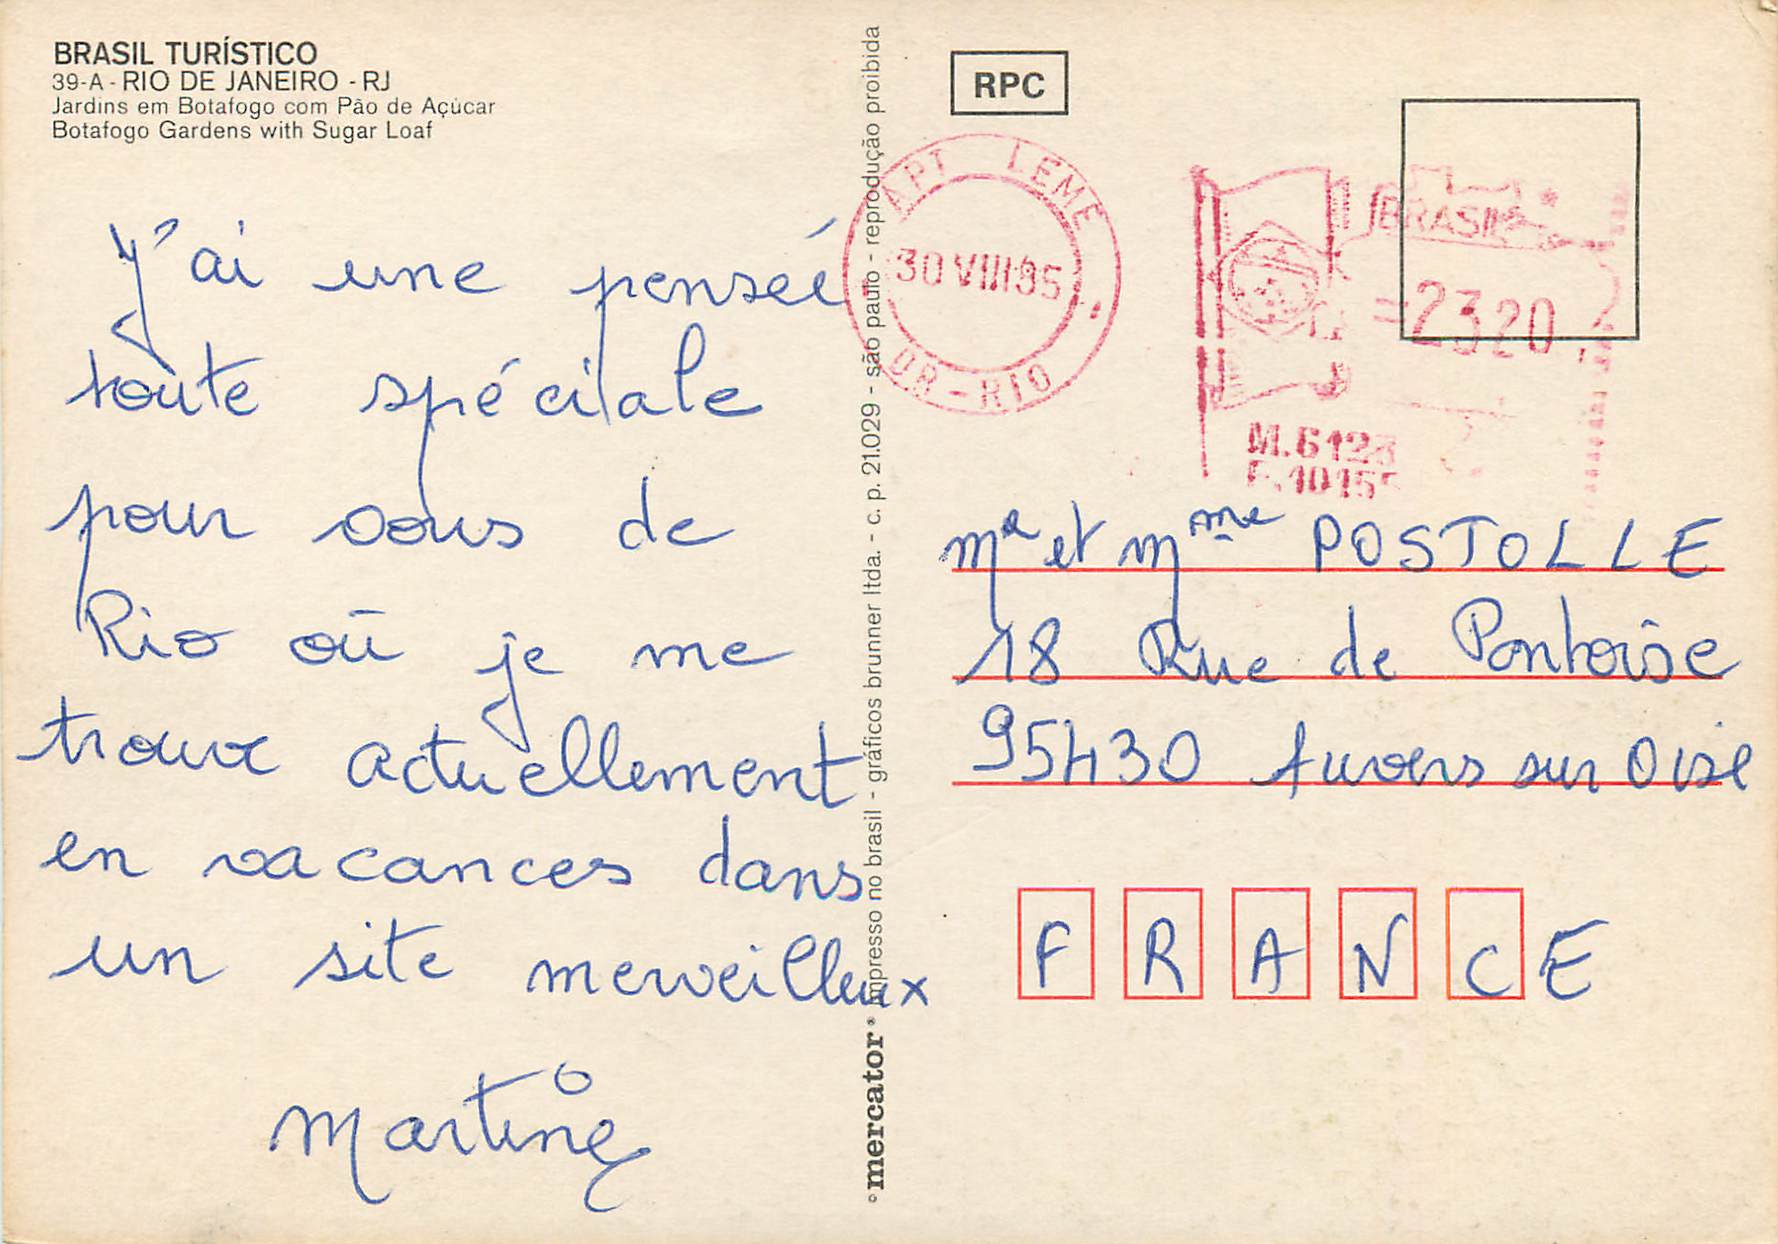 BRASIL TURÍSTICO
39-A - RIO DE JANEIRO - RJ
Jardins em Botafogo com Pão de Açúcar
Botafogo Gardens with Sugar Loaf
J'ai une penseé
toute spéciale
pour vous de
Rio où je me
trouve actuellement
en vacances dans
un site merveilleux
Martine
mercator impresso no brasil - gráficos brunner ltda. - c. p. 21.029 - são paulo - reprodução proibida
RPC
APT LEME
30 VIII 85
DR-RIO
BRASIL
=2320
M.6123
Mr et Mme POSTOLLE
18 Rue de Pontoise
95430 Auvers sur Oise
FRANCE